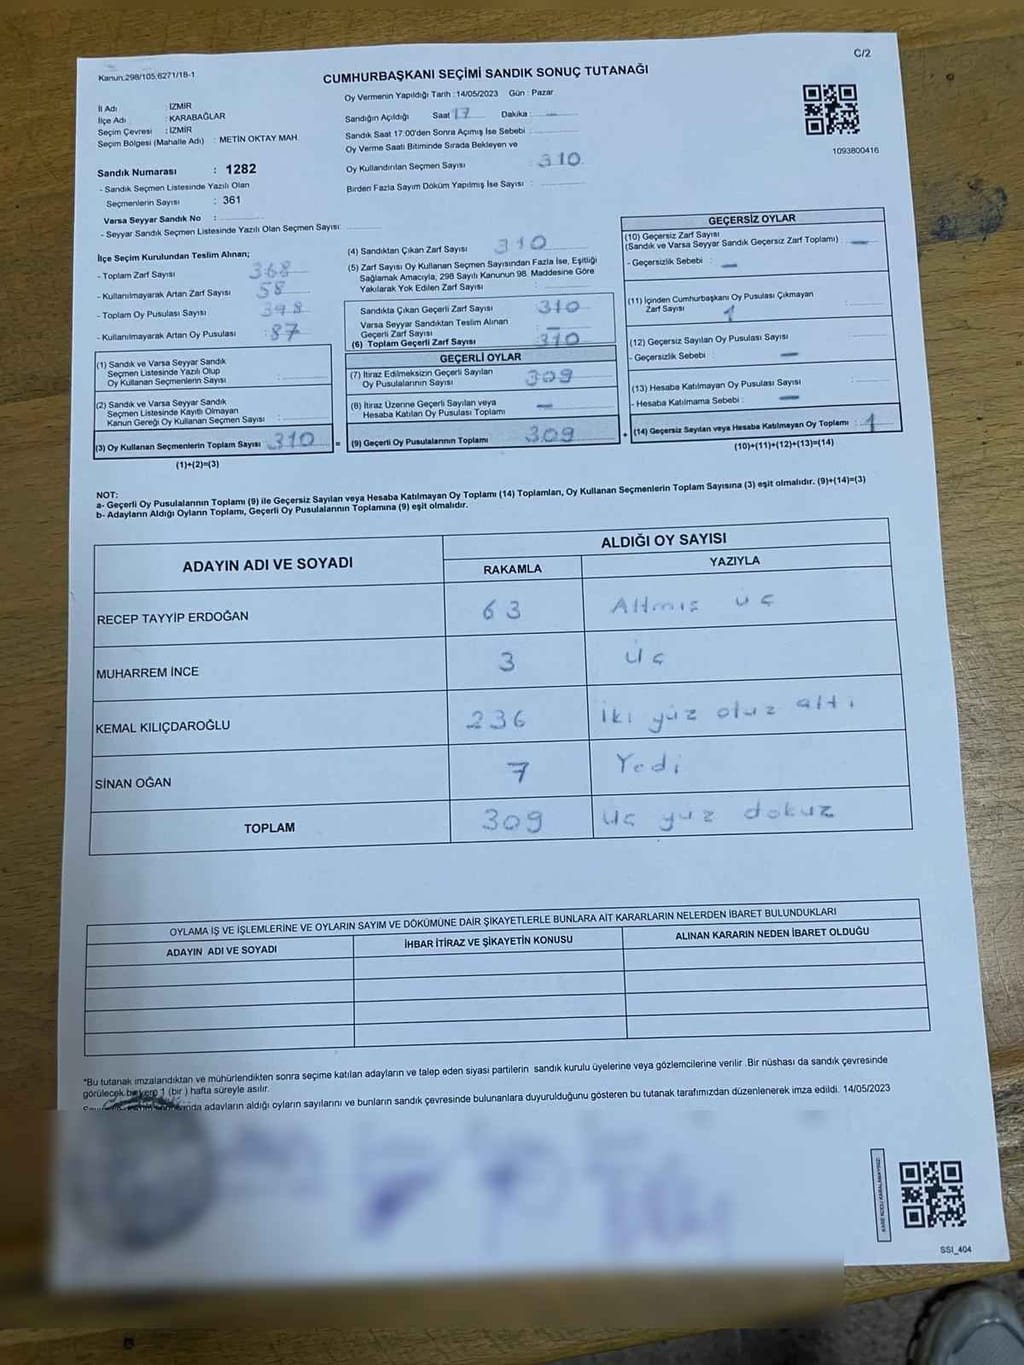 C/2
Kanun:298/105,6271/18-1
CUMHURBAŞKANI SEÇİMİ SANDIK SONUÇ TUTANAĞI
Oy Vermenin Yapıldığı Tarih : 14/05/2023 Gün : Pazar
İl Adı : İZMİR
İlçe Adı : KARABAĞLAR
Seçim Çevresi : İZMİR
Seçim Bölgesi (Mahalle Adı) : METİN OKTAY MAH
Sandığın Açıldığı Saat 17 Dakika : —
Sandık Saat 17:00'den Sonra Açımış İse Sebebi :
Oy Verme Saati Bitiminde Sırada Bekleyen ve
Oy Kullandırılan Seçmen Sayısı : 310
Birden Fazla Sayım Döküm Yapılmış İse Sayısı :
1093800416
Sandık Numarası : 1282
- Sandık Seçmen Listesinde Yazılı Olan
Seçmenlerin Sayısı : 361
Varsa Seyyar Sandık No :
- Seyyar Sandık Seçmen Listesinde Yazılı Olan Seçmen Sayısı:
İlçe Seçim Kurulundan Teslim Alınan;
- Toplam Zarf Sayısı : 368
- Kullanılmayarak Artan Zarf Sayısı : 58
- Toplam Oy Pusulası Sayısı : 398
- Kullanılmayarak Artan Oy Pusulası : 87
(1) Sandık ve Varsa Seyyar Sandık
Seçmen Listesinde Yazılı Olup
Oy Kullanan Seçmenlerin Sayısı :
(2) Sandık ve Varsa Seyyar Sandık
Seçmen Listesinde Kayıtlı Olmayan
Kanun Gereği Oy Kullanan Seçmen Sayısı :
(3) Oy Kullanan Seçmenlerin Toplam Sayısı : 310 =
(1)+(2)=(3)
(4) Sandıktan Çıkan Zarf Sayısı : 310
(5) Zarf Sayısı Oy Kullanan Seçmen Sayısından Fazla İse, Eşitliği
Sağlamak Amacıyla, 298 Sayılı Kanunun 98. Maddesine Göre
Yakılarak Yok Edilen Zarf Sayısı :
Sandıkta Çıkan Geçerli Zarf Sayısı : 310
Varsa Seyyar Sandıktan Teslim Alınan
Geçerli Zarf Sayısı : —
(6) Toplam Geçerli Zarf Sayısı : 310
GEÇERLİ OYLAR
(7) İtiraz Edilmeksizin Geçerli Sayılan
Oy Pusulalarının Sayısı : 309
(8) İtiraz Üzerine Geçerli Sayılan veya
Hesaba Katılan Oy Pusulası Toplamı : —
(9) Geçerli Oy Pusulalarının Toplamı : 309 +
GEÇERSİZ OYLAR
(10) Geçersiz Zarf Sayısı
(Sandık ve Varsa Seyyar Sandık Geçersiz Zarf Toplamı) : —
- Geçersizlik Sebebi : —
(11) İçinden Cumhurbaşkanı Oy Pusulası Çıkmayan
Zarf Sayısı : 1
(12) Geçersiz Sayılan Oy Pusulası Sayısı :
- Geçersizlik Sebebi : —
(13) Hesaba Katılmayan Oy Pusulası Sayısı :
- Hesaba Katılmama Sebebi : —
(14) Geçersiz Sayılan veya Hesaba Katılmayan Oy Toplamı : 1
(10)+(11)+(12)+(13)=(14)
NOT:
a- Geçerli Oy Pusulalarının Toplamı (9) ile Geçersiz Sayılan veya Hesaba Katılmayan Oy Toplamı (14) Toplamları, Oy Kullanan Seçmenlerin Toplam Sayısına (3) eşit olmalıdır. (9)+(14)=(3)
b- Adayların Aldığı Oyların Toplamı, Geçerli Oy Pusulalarının Toplamına (9) eşit olmalıdır.
ADAYIN ADI VE SOYADI
ALDIĞI OY SAYISI
RAKAMLA YAZIYLA
RECEP TAYYİP ERDOĞAN 63 Altmış üç
MUHARREM İNCE 3 Üç
KEMAL KILIÇDAROĞLU 236 İki yüz otuz altı
SİNAN OĞAN 7 Yedi
TOPLAM 309 üç yüz dokuz
OYLAMA İŞ VE İŞLEMLERİNE VE OYLARIN SAYIM VE DÖKÜMÜNE DAİR ŞİKAYETLERLE BUNLARA AİT KARARLARIN NELERDEN İBARET BULUNDUKLARI
ADAYIN ADI VE SOYADI İHBAR İTİRAZ VE ŞİKAYETİN KONUSU ALINAN KARARIN NEDEN İBARET OLDUĞU
*Bu tutanak imzalandıktan ve mühürlendikten sonra seçime katılan adayların ve talep eden siyasi partilerin sandık kurulu üyelerine veya gözlemcilerine verilir .Bir nüshası da sandık çevresinde
görülecek bir yere 1 (bir ) hafta süreyle asılır.
adayların aldığı oyların sayılarını ve bunların sandık çevresinde bulunanlara duyurulduğunu gösteren bu tutanak tarafımızdan düzenlenerek imza edildi. 14/05/2023
SSI_404